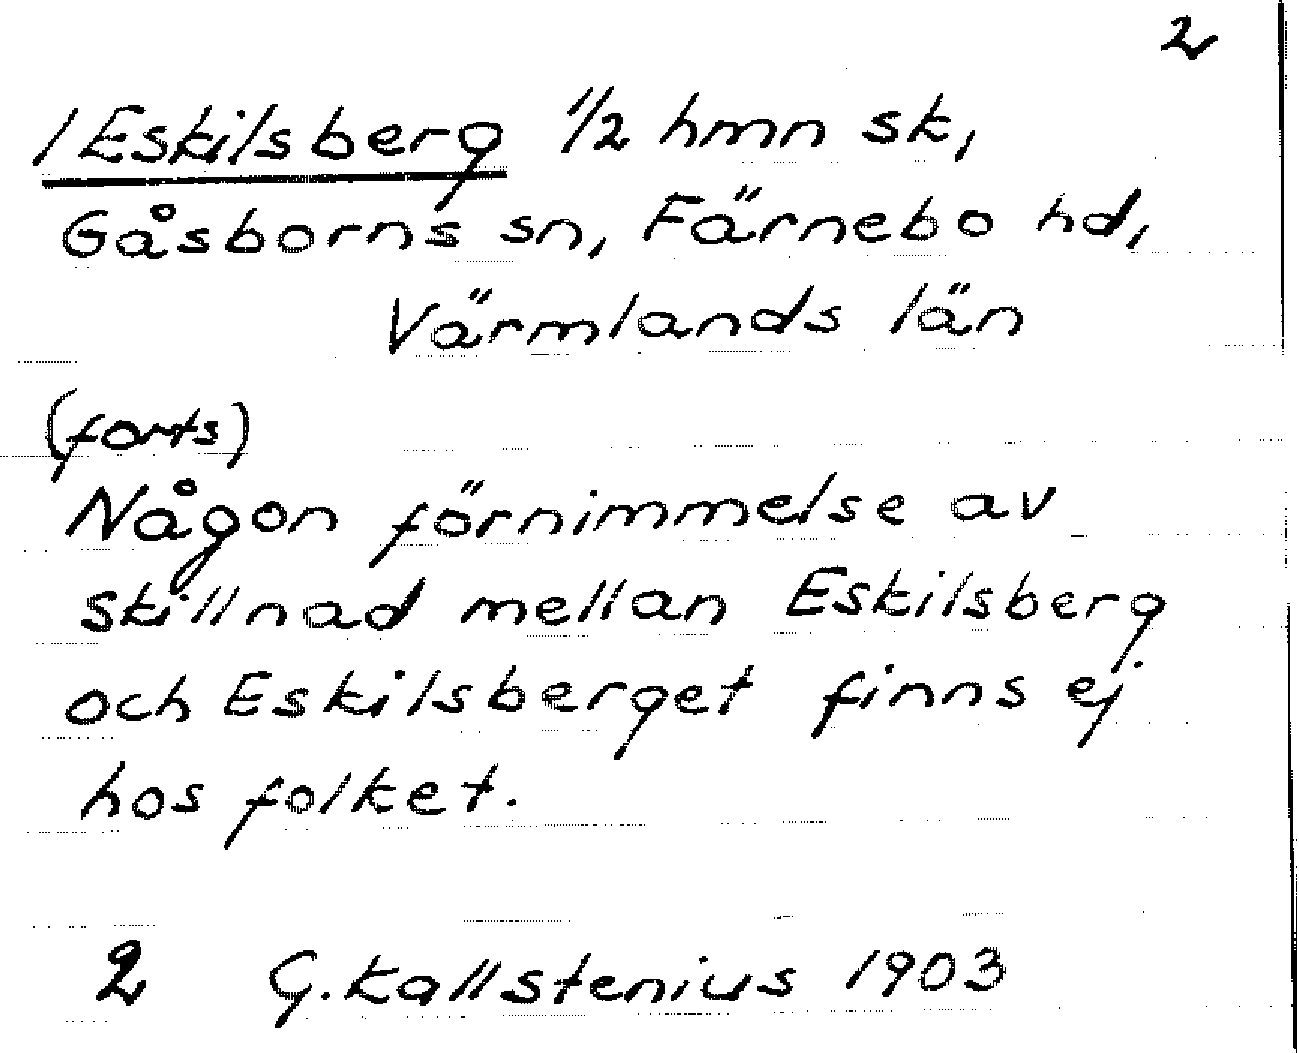 2
/Eskilsberg 1/2 hmn sk,
Gåsborns sn, Färnebo hd,
Värmlands län
(forts)
Någon förnimmelse av
skillnad mellan Eskilsberg
och Eskilsberget finns ej
hos folket.
2 G. Kallstenius 1903